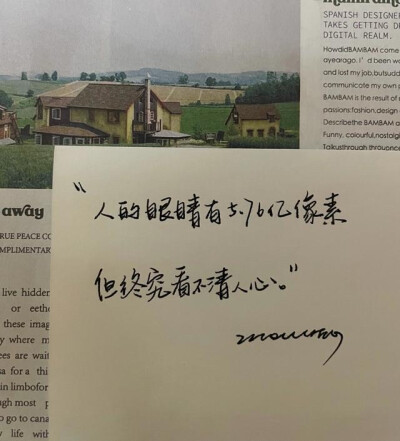 SPANISH DESIGNER
TAKES GETTING DR
DIGITAL REALM.
HowdidBAMBAM come
ayearago.I'd been wa
and lost my job,butsudd
communicate my own p
BAMBAM is the result of r
passions:fashion,design
Describethe BAMBAM a
Funny, colourful,nostalgi
"人的眼睛有5.76亿像素
但终究看不清人心。"
away
RUE PEACE CO
OMPLIMENTAR
live hidden
or eethe
these imag
y where m
ees are wait
sa for a thi
in limbofor
ugh most p
o go to cana
y life with